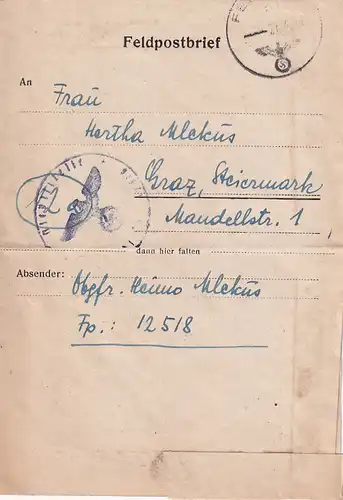 Feldpostbrief
An
Frau
Hertha Mlekus
Graz, Steiermark
Mandellstr. 1
dann hier falten
Absender: Obgfr. Heimo Mlekus
Fp.: 12518